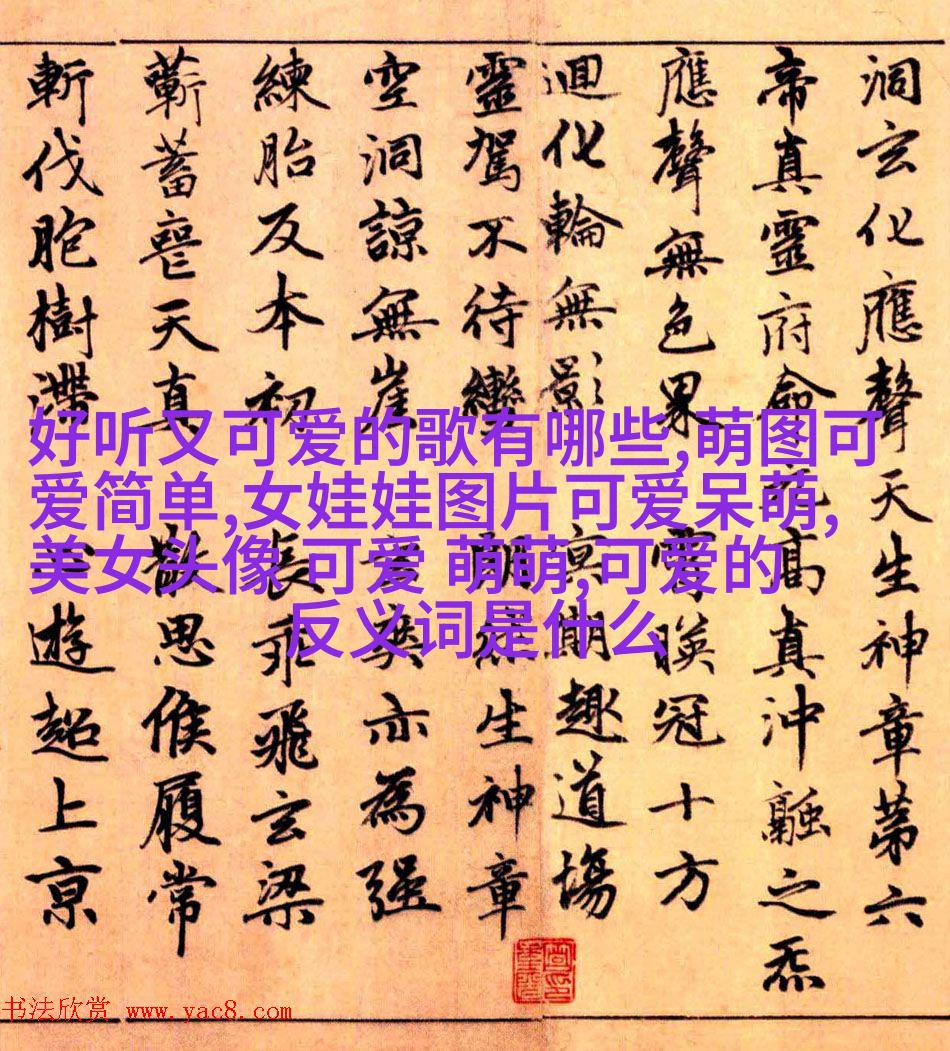 洞玄化應聲天生神章第六
帝真靈府命 高真沖融之炁
應聲無色界 霄暎冠十方
迴化輪無影 冥期趣道場
靈駕不待轡 生神章
空洞諒無崖 玄爽亦為强
練胎反本初 長乖飛玄梁
蘄蓄喪天真 散思候履常
斬伐胞樹滯 遊超上京
好听又可爱的歌有哪些,萌图可
爱简单,女娃娃图片可爱呆萌,
美女头像 可爱 萌萌,可爱的
反义词是什么
书法欣赏 www.yac8.com